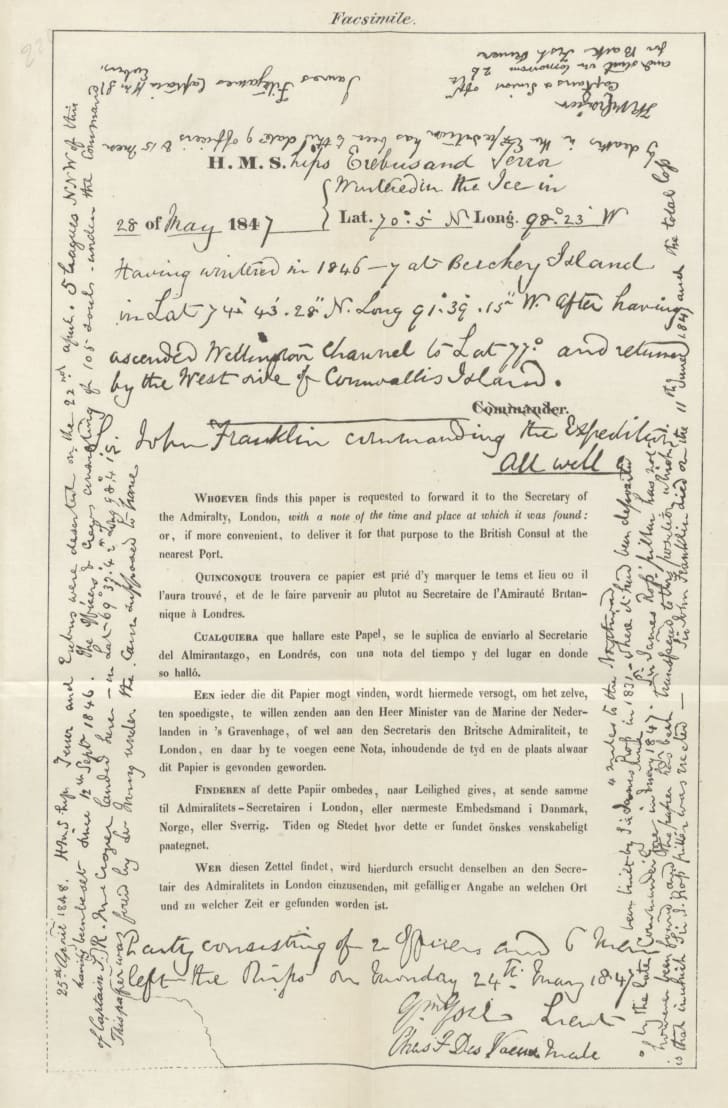 Facsimile.
H.M.S. hips Erebus and Terror
Wintered in the Ice in
28 of May 1847 Lat. 70°. 5' N Long. 98°. 23' W
Having wintered in 1846–7 at Beechey Island
in Lat 74° 43'. 28" N. Long 91°. 39'. 15" W. After having
ascended Wellington Channel to Lat 77° and returned
by the West side of Cornwallis Island.
Commander.
John Franklin commanding the Expedition
All well
WHOEVER finds this paper is requested to forward it to the Secretary of
the Admiralty, London, with a note of the time and place at which it was found:
or, if more convenient, to deliver it for that purpose to the British Consul at the
nearest Port.
QUINCONQUE trouvera ce papier est prié d'y marquer le tems et lieu ou il
l'aura trouvé, et de le faire parvenir au plutot au Secretaire de l'Amirauté Britan-
nique à Londres.
CUALQUIERA que hallare este Papel, se le suplica de enviarlo al Secretario
del Almirantazgo, en Londrés, con una nota del tiempo y del lugar en donde
so halló.
EEN ieder die dit Papier mogt vinden, wordt hiermede versogt, om het zelve,
ten spoedigste, te willen zenden aan den Heer Minister van de Marine der Neder-
landen in 's Gravenhage, of wel aan den Secretaris den Britsche Admiraliteit, te
London, en daar by te voegen eene Nota, inhoudende de tyd en de plaats alwaar
dit Papier is gevonden geworden.
FINDEREN af dette Papiir ombedes, naar Leilighed gives, at sende samme
til Admiralitets-Secretairen i London, eller nærmeste Embedsmand i Danmark,
Norge, eller Sverrig. Tiden og Stedet hvor dette er fundet önskes venskabeligt
paategnet.
WER diesen Zettel findet, wird hierdurch ersucht denselben an den Secre-
tair des Admiralitets in London einzusenden, mit gefälliger Angabe an welchen Ort
und zu welcher Zeit er gefunden worden ist.
Party consisting of 2 Officers and 6 Men
left the Ships on Monday 24th May 1847
Gm Gore Lieut
Chas F Des Voeux Mate
25th April 1848. HMShips Terror and Erebus were deserted on the 22nd April. 5 leagues NNW of this
having been beset since 12th Sept 1846. The Officers & Crews consisting of 105 souls under the Command
of Captain F.R.M. Crozier landed here – in Lat 69° 37' 42" Long 98° 41'
This paper was found by Lt Irving under the Cairn supposed to have
been built by Sir James Ross in 1831 where it had been deposited
4 miles to the Northward
by the late Commander Gore in June 1847. Sir James Ross' pillar has not
however been found and the paper has been transferred to this position which
is that in which Sir J. Ross pillar was erected – Sir John Franklin died on the 11th June 1847 and the total loss
by deaths in the Expedition has been to this date 9 officers & 15 Men
James Fitzjames Captain HMS Erebus
F R M Crozier
Captain & Senior Offr
and start on tomorrow 26
for Backs Fish River